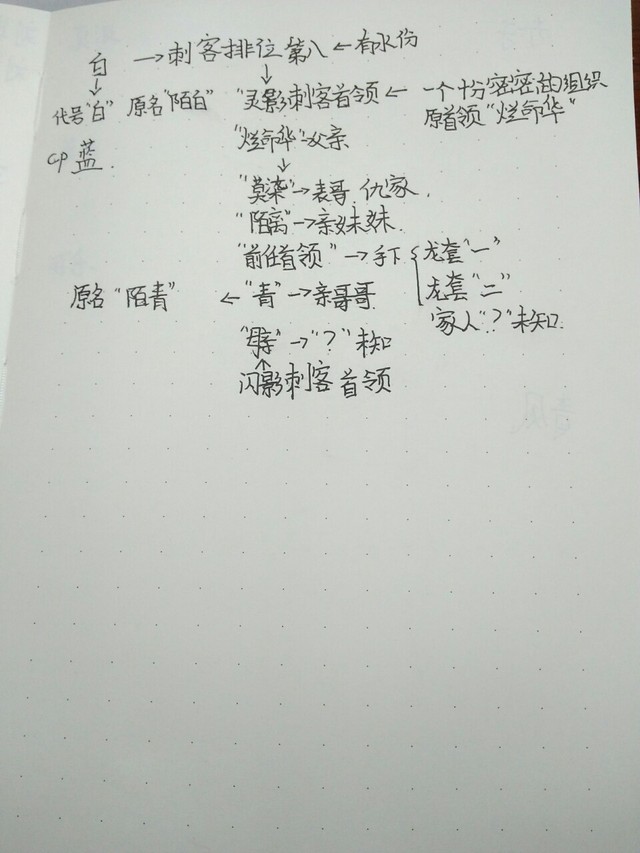 白 →刺客排位第八←有水份
↓ ↓
代号"白" 原名"陌白" "灵影刺客首领← 一个十分密密的组织
原首领"烂命华"
"烂命华"父亲
cp 蓝.
↓
"莫染"→表哥.仇家.
"陌离"→亲妹妹.
"前任首领"→手下{龙套"一"
龙套"二"
"家人"?"未知.
原名"陌青" ←"青"→亲哥哥.
→"?"未知
↑
闪影刺客首领